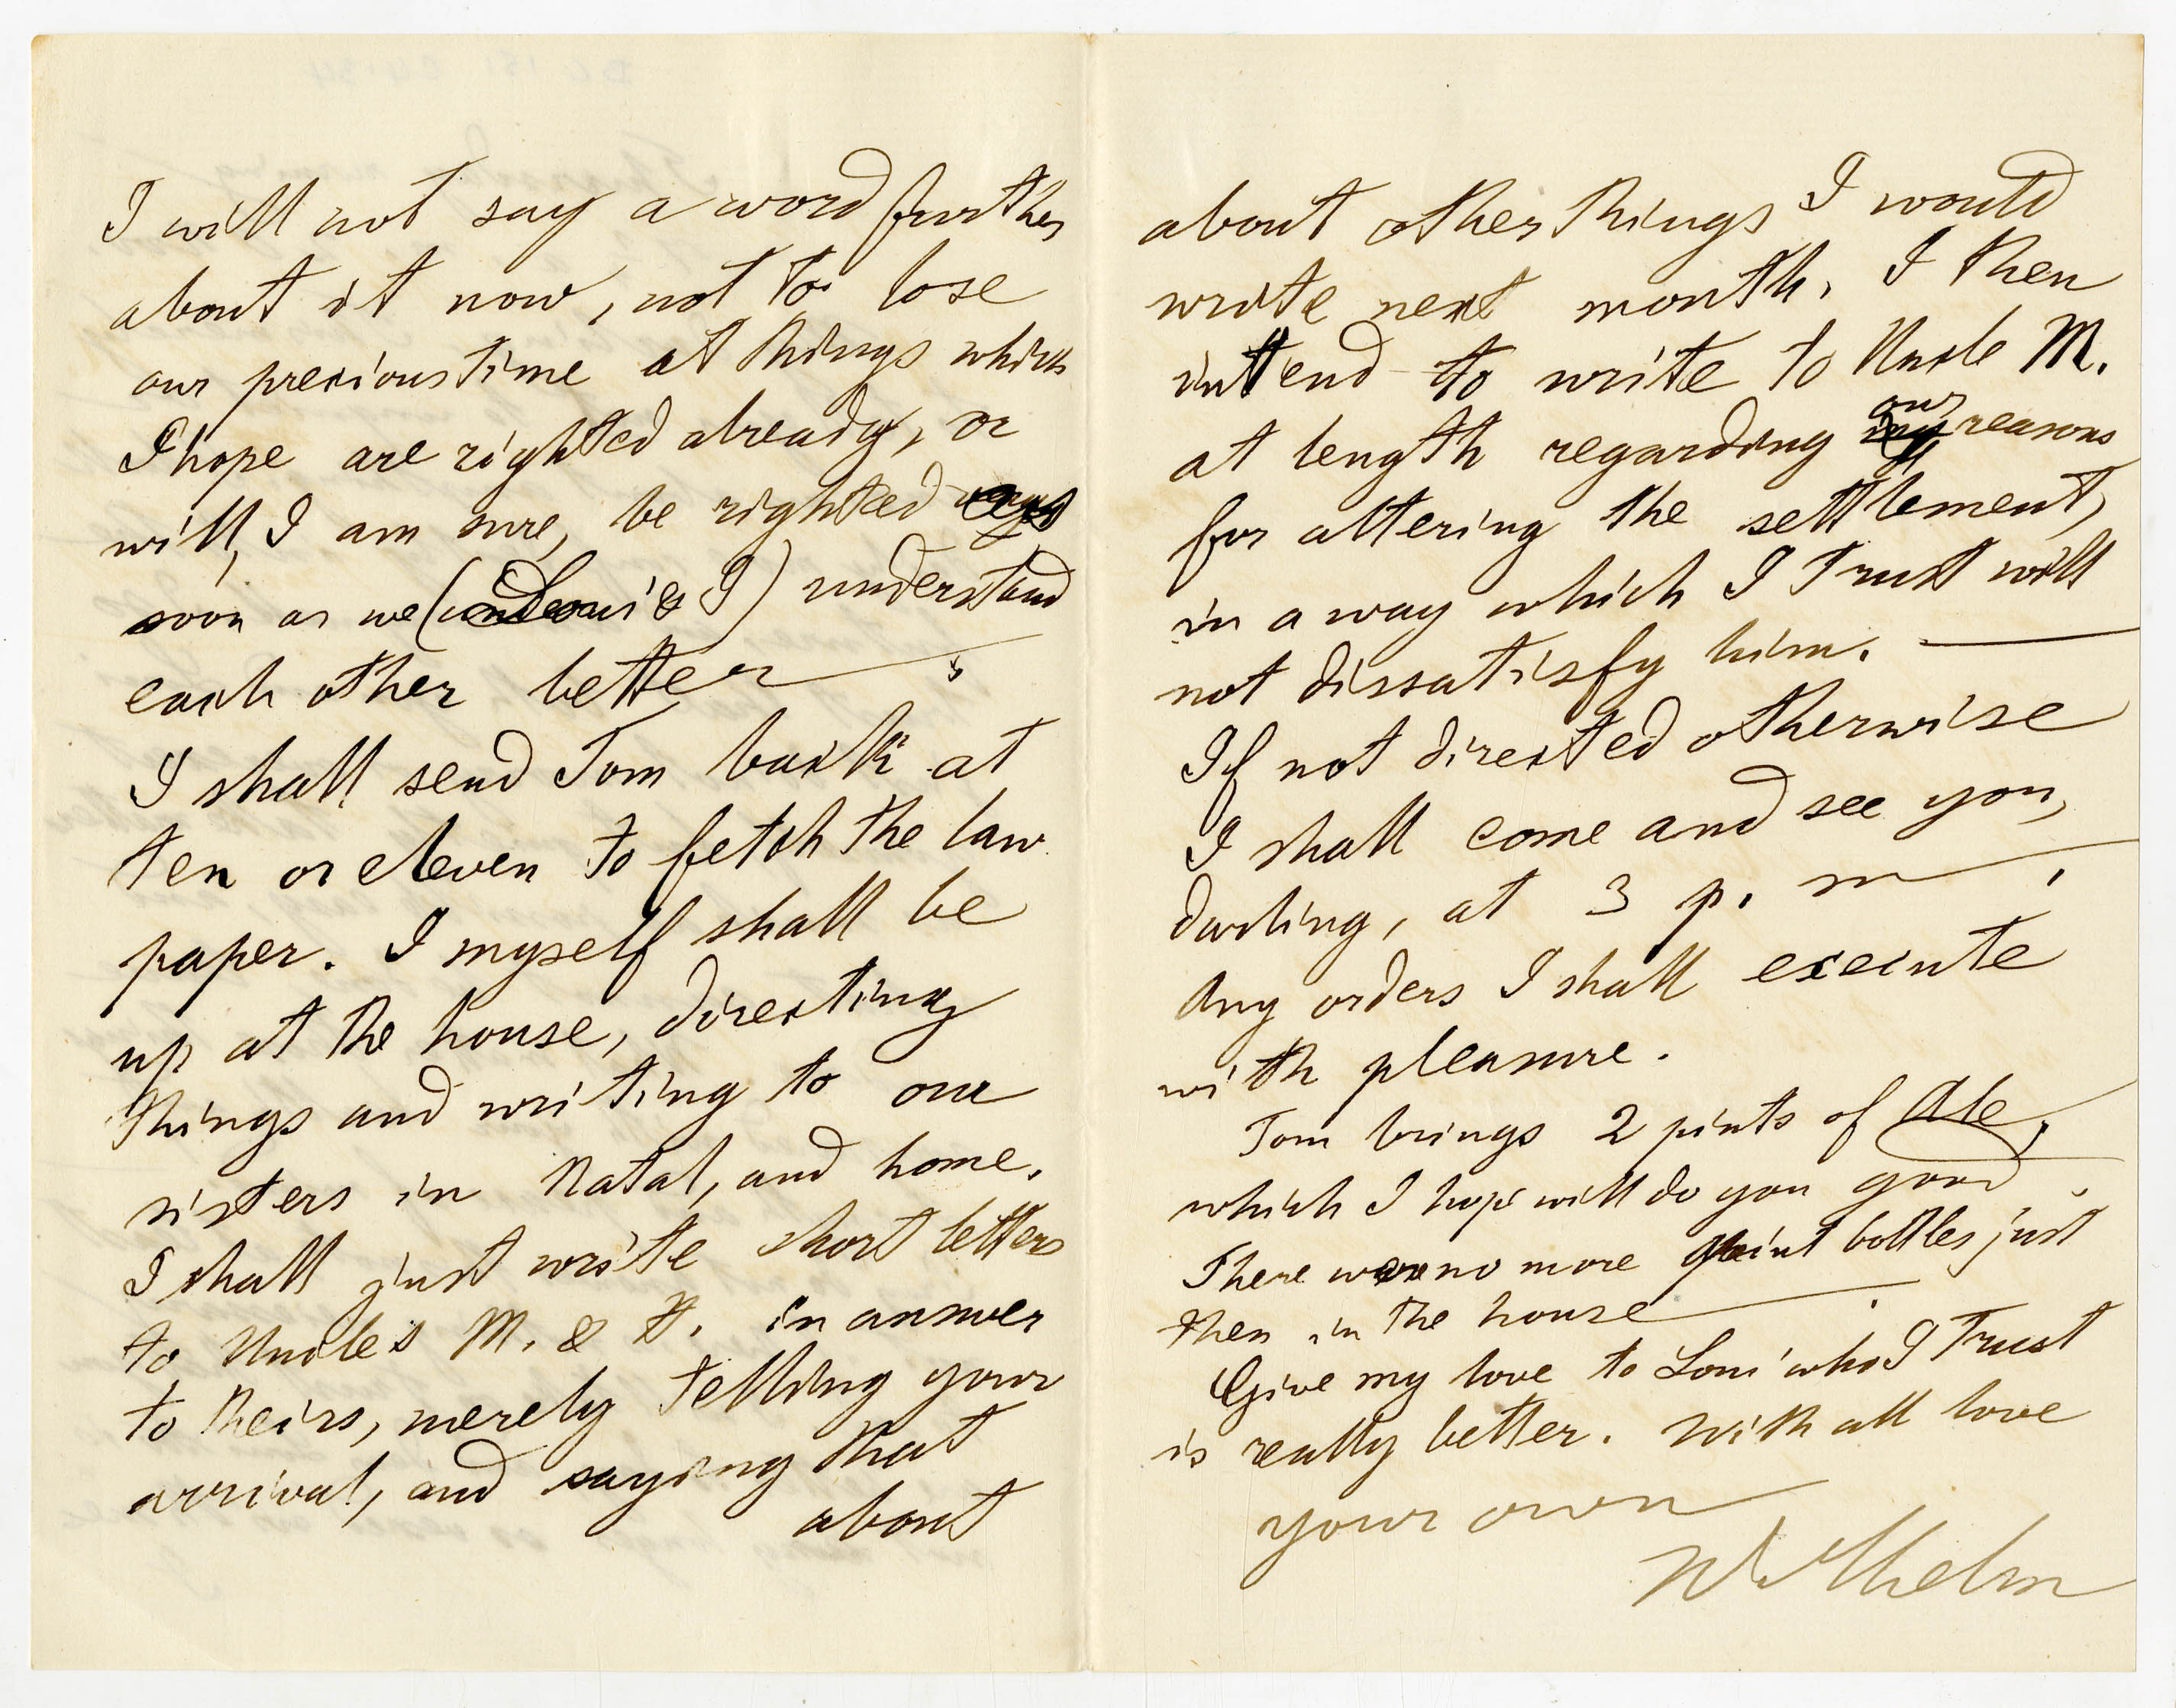 I will not say a word further
about it now, not to lose
our precious time at things which
I hope are righted already, or
will, I am sure, be righted very
soon as we (Loui & I) understand
each other better.
I shall send Tom back at
ten or eleven to fetch the law
paper. I myself shall be
up at the house, directing
things and writing to our
sisters in Natal, and home.
I shall just write short letters
to Uncles M. & H. in answer
to theirs, merely telling your
arrival, and saying that
about
about other things I would
write next month. I then
intend to write to Uncle M.
at length regarding our reasons
for altering the settlement,
in a way which I trust will
not dissatisfy him. —
If not directed otherwise
I shall come and see you,
darling, at 3 p. m.
Any orders I shall execute
with pleasure.
Tom brings 2 pints of Ale,
which I hope will do you good.
There were no more pint bottles just
then in the house.
Give my love to Loui who I trust
is really better. With all love
your own
Wilhelm